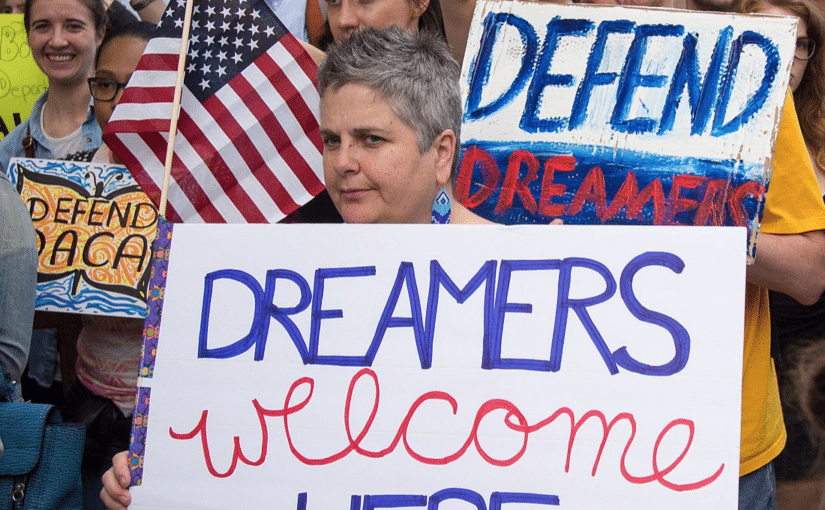 DEFEND
DREAMERS
DEFEND
DACA
DREAMERS
welcome
HERE